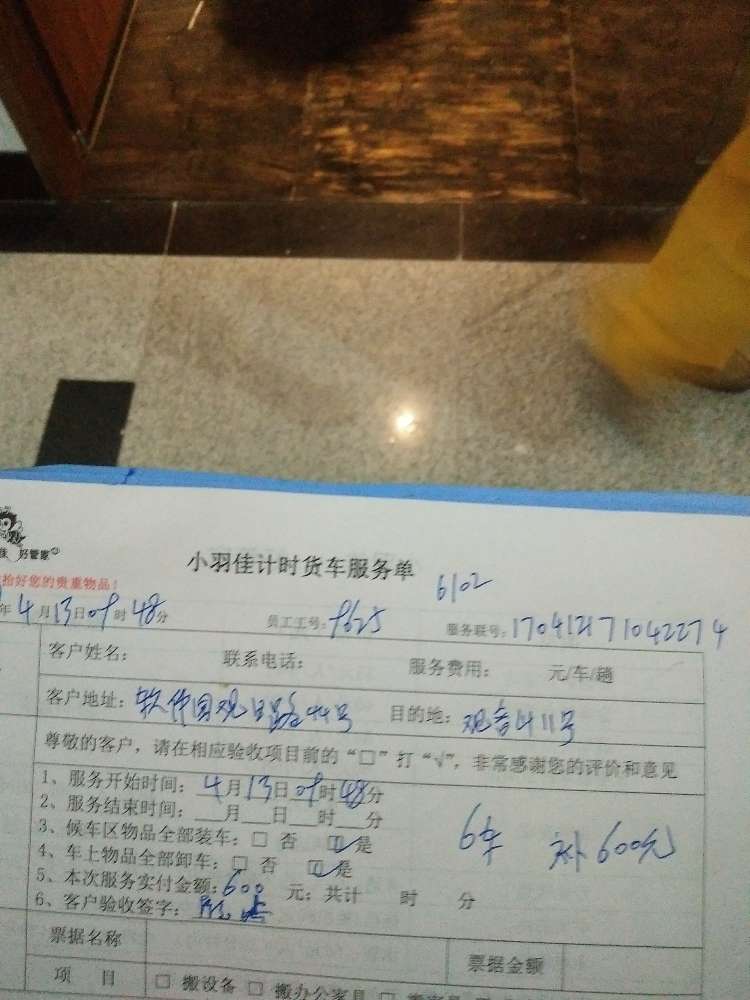 好管家
小羽佳计时货车服务单
拾好您的贵重物品!
6102
年4月13日09时48分 员工工号: 9625 服务联号: 170412171042274
客户姓名: 联系电话: 服务费用: 元/车/趟
客户地址: 软件园观日路44号 目的地: 观音山11号
尊敬的客户，请在相应验收项目前的“□”打“√”，非常感谢您的评价和意见
1、服务开始时间: 4月13日09时48分
2、服务结束时间: ___月___日___时___分
3、候车区物品全部装车: □ 否 ☑ 是
6车 补600元
4、车上物品全部卸车: □ 否 ☑ 是
5、本次服务实付金额: 600 元; 共计 时 分
6、客户验收签字:
票据名称 票据金额
项 目 □ 搬设备 □ 搬办公家具 □